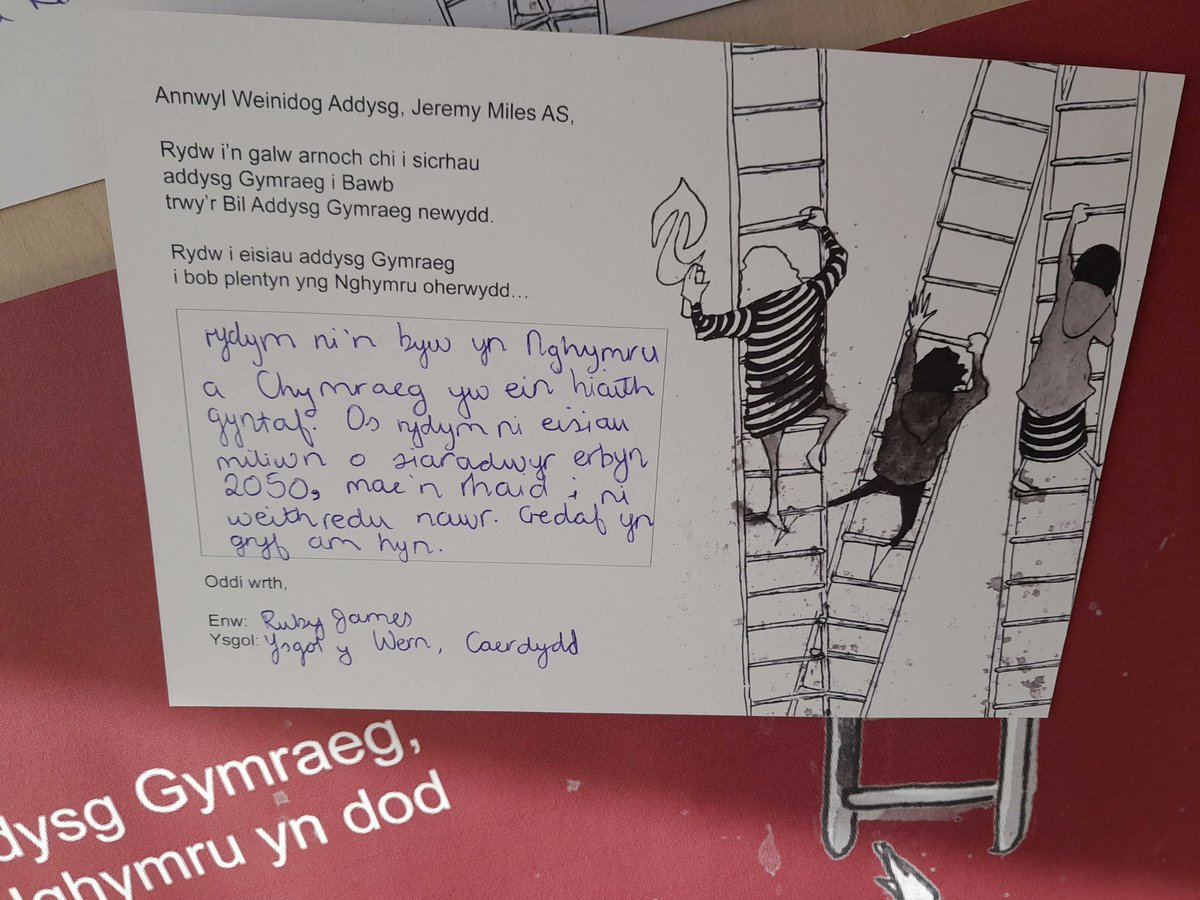 Annwyl Weinidog Addysg, Jeremy Miles AS,
Rydw i'n galw arnoch chi i sicrhau
addysg Gymraeg i Bawb
trwy'r Bil Addysg Gymraeg newydd.
Rydw i eisiau addysg Gymraeg
i bob plentyn yng Nghymru oherwydd...
rydym ni'n byw yn Nghymru
a Chymraeg yw ein hiaith
gyntaf. Os rydym ni eisiau
miliwn o siaradwyr erbyn
2050, mae'n rhaid i ni
weithredu nawr. Credaf yn
gryf am hyn.
Oddi wrth,
Enw: Ruby James
Ysgol: Ysgol y Wern, Caerdydd
dysg Gymraeg,
Nghymru yn dod